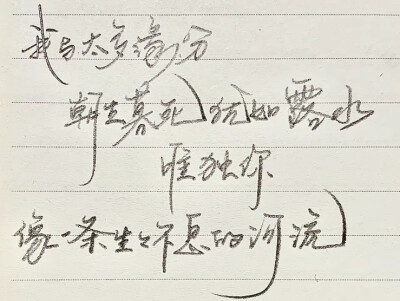 我与太多缘分
朝生暮死 犹如露水
唯独你
像一条生生不息的河流